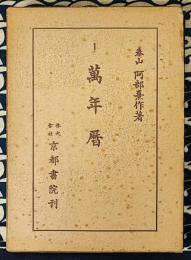 泰山 阿部熹作著
1
萬年暦
株式
会社 京都書院刊